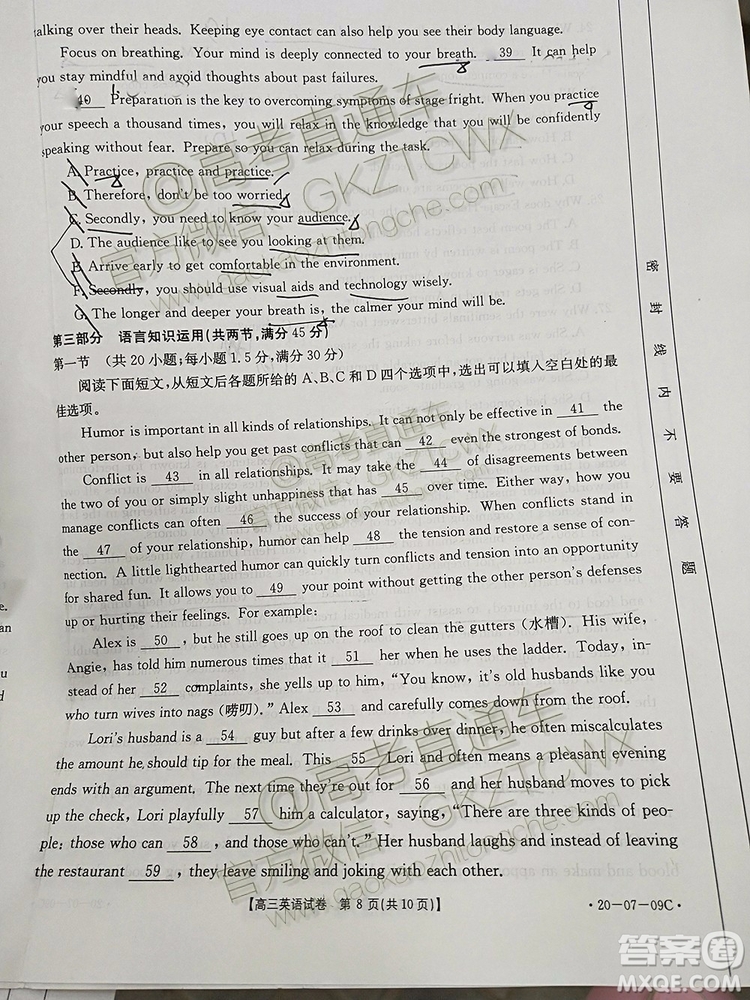 talking over their heads. Keeping eye contact can also help you see their body language.
Focus on breathing. Your mind is deeply connected to your breath. 39 It can help
you stay mindful and avoid thoughts about past failures.
40 Preparation is the key to overcoming symptoms of stage fright. When you practice
your speech a thousand times, you will relax in the knowledge that you will be confidently
speaking without fear. Prepare so you can relax during the task.
A. Practice, practice and practice.
B. Therefore, don't be too worried.
C. Secondly, you need to know your audience.
D. The audience like to see you looking at them.
E. Arrive early to get comfortable in the environment.
F. Secondly, you should use visual aids and technology wisely.
G. The longer and deeper your breath is, the calmer your mind will be.
第三部分 语言知识运用(共两节,满分 45 分)
第一节 (共 20 小题;每小题 1.5 分,满分 30 分)
阅读下面短文,从短文后各题所给的 A、B、C 和 D 四个选项中,选出可以填入空白处的最
佳选项。
Humor is important in all kinds of relationships. It can not only be effective in 41 the
other person, but also help you get past conflicts that can 42 even the strongest of bonds.
Conflict is 43 in all relationships. It may take the 44 of disagreements between
the two of you or simply slight unhappiness that has 45 over time. Either way, how you
manage conflicts can often 46 the success of your relationship. When conflicts stand in
the 47 of your relationship, humor can help 48 the tension and restore a sense of con-
nection. A little lighthearted humor can quickly turn conflicts and tension into an opportunity
for shared fun. It allows you to 49 your point without getting the other person's defenses
up or hurting their feelings. For example:
Alex is 50 , but he still goes up on the roof to clean the gutters (水槽). His wife,
Angie, has told him numerous times that it 51 her when he uses the ladder. Today, in-
stead of her 52 complaints, she yells up to him, "You know, it's old husbands like you
who turn wives into nags (唠叨)." Alex 53 and carefully comes down from the roof.
Lori's husband is a 54 guy but after a few drinks over dinner, he often miscalculates
the amount he should tip for the meal. This 55 Lori and often means a pleasant evening
ends with an argument. The next time they're out for 56 and her husband moves to pick
up the check, Lori playfully 57 him a calculator, saying, "There are three kinds of peo-
ple: those who can 58 , and those who can't." Her husband laughs and instead of leaving
the restaurant 59 , they leave smiling and joking with each other.
【高三英语试卷 第 8 页(共 10 页)】
·20-07-09C·
密封线内不要答题
@高考直通车
官方微信：GKZTCWX
www.gaokaozhitongche.com
@高考直通车
官方微信：GKZTCWX
www.gaokaozhitongche.com
@高考直通车
官方微信：GKZTCWX
www.gaokaozhitongche.com
答案圈
MXQE.COM